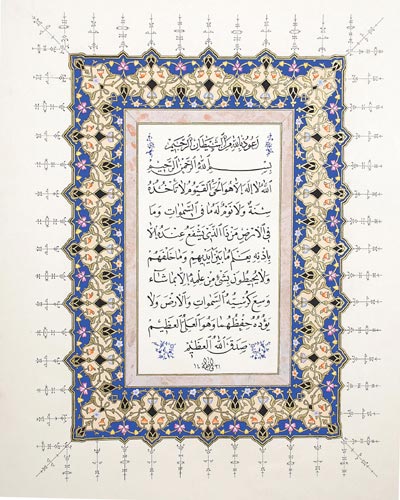 اعوذ بالله من الشيطان الرجيم
بسم الله الرحمن الرحيم
الله لا اله الا هو الحي القيوم لا تأخذه
سنة ولا نوم له ما في السموات وما
في الارض من ذا الذي يشفع عنده الا
باذنه يعلم ما بين ايديهم وما خلفهم
ولا يحيطون بشئ من علمه الا بما شاء
وسع كرسيه السموات والارض ولا
يؤده حفظهما وهو العلي العظيم
صدق الله العظيم